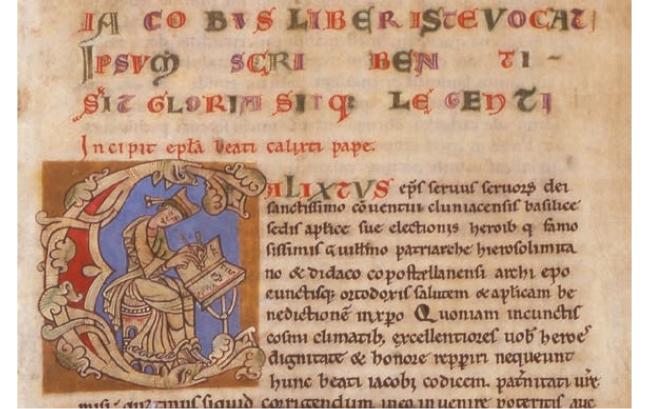 IACOBUS LIBER ISTE VOCAT
IPSVM SCRIBENTI-
SIT GLORIA SITQ: LEGENTI
Incipit epła beati calixti pape.
CALIXTVS ep̄s seruus seruoꝝ dei
sanctissimo cōuentui cluniacensis basilice
sedis aplice sue electionis heroib q famo
sissimis Guill̄mo patriarche hierosolimita
no & didaco copostellanensi archi epo
cunctisq; ortodoxis salutem & aplicam be
nedictionē in xpo Quoniam in cunctis
cosmi climatib; excellentiores uob̄ heroes
dignitate & honore repperiri nequeunt
hunc beati iacobi codicem pat̄nitati ur̄e
misi quatinus siquid corrigendum in eo inuenire poteritis